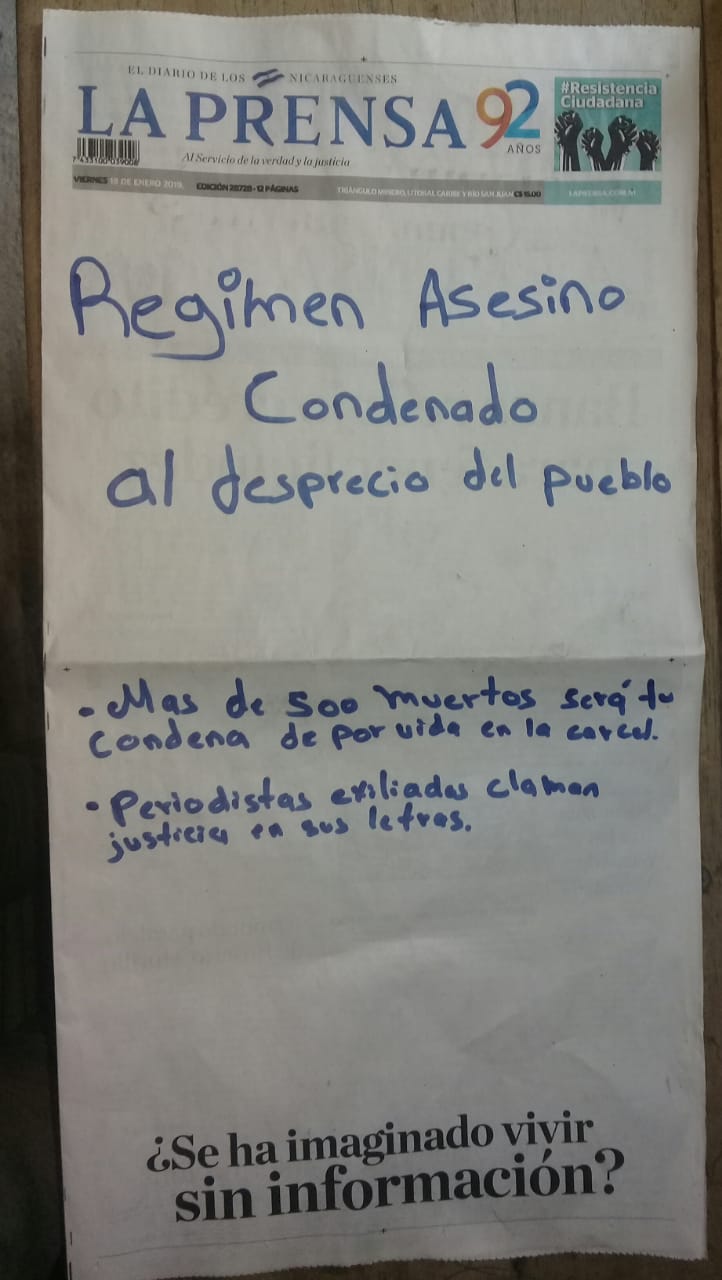 EL DIARIO DE LOS NICARAGÜENSES
LA PRENSA 92
AÑOS
#Resistencia
Ciudadana
Al Servicio de la verdad y la justicia
VIERNES 18 DE ENERO 2019. EDICIÓN 28728 - 12 PÁGINAS TRIÁNGULO MINERO, LITORAL CARIBE Y RÍO SAN JUAN C$ 15.00 LAPRENSA.COM.NI
Regimen Asesino
Condenado
al desprecio del pueblo
• Mas de 500 muertos será tu
condena de por vida en la carcel.
• Periodistas exiliados claman
justicia en sus letras.
¿Se ha imaginado vivir
sin información?